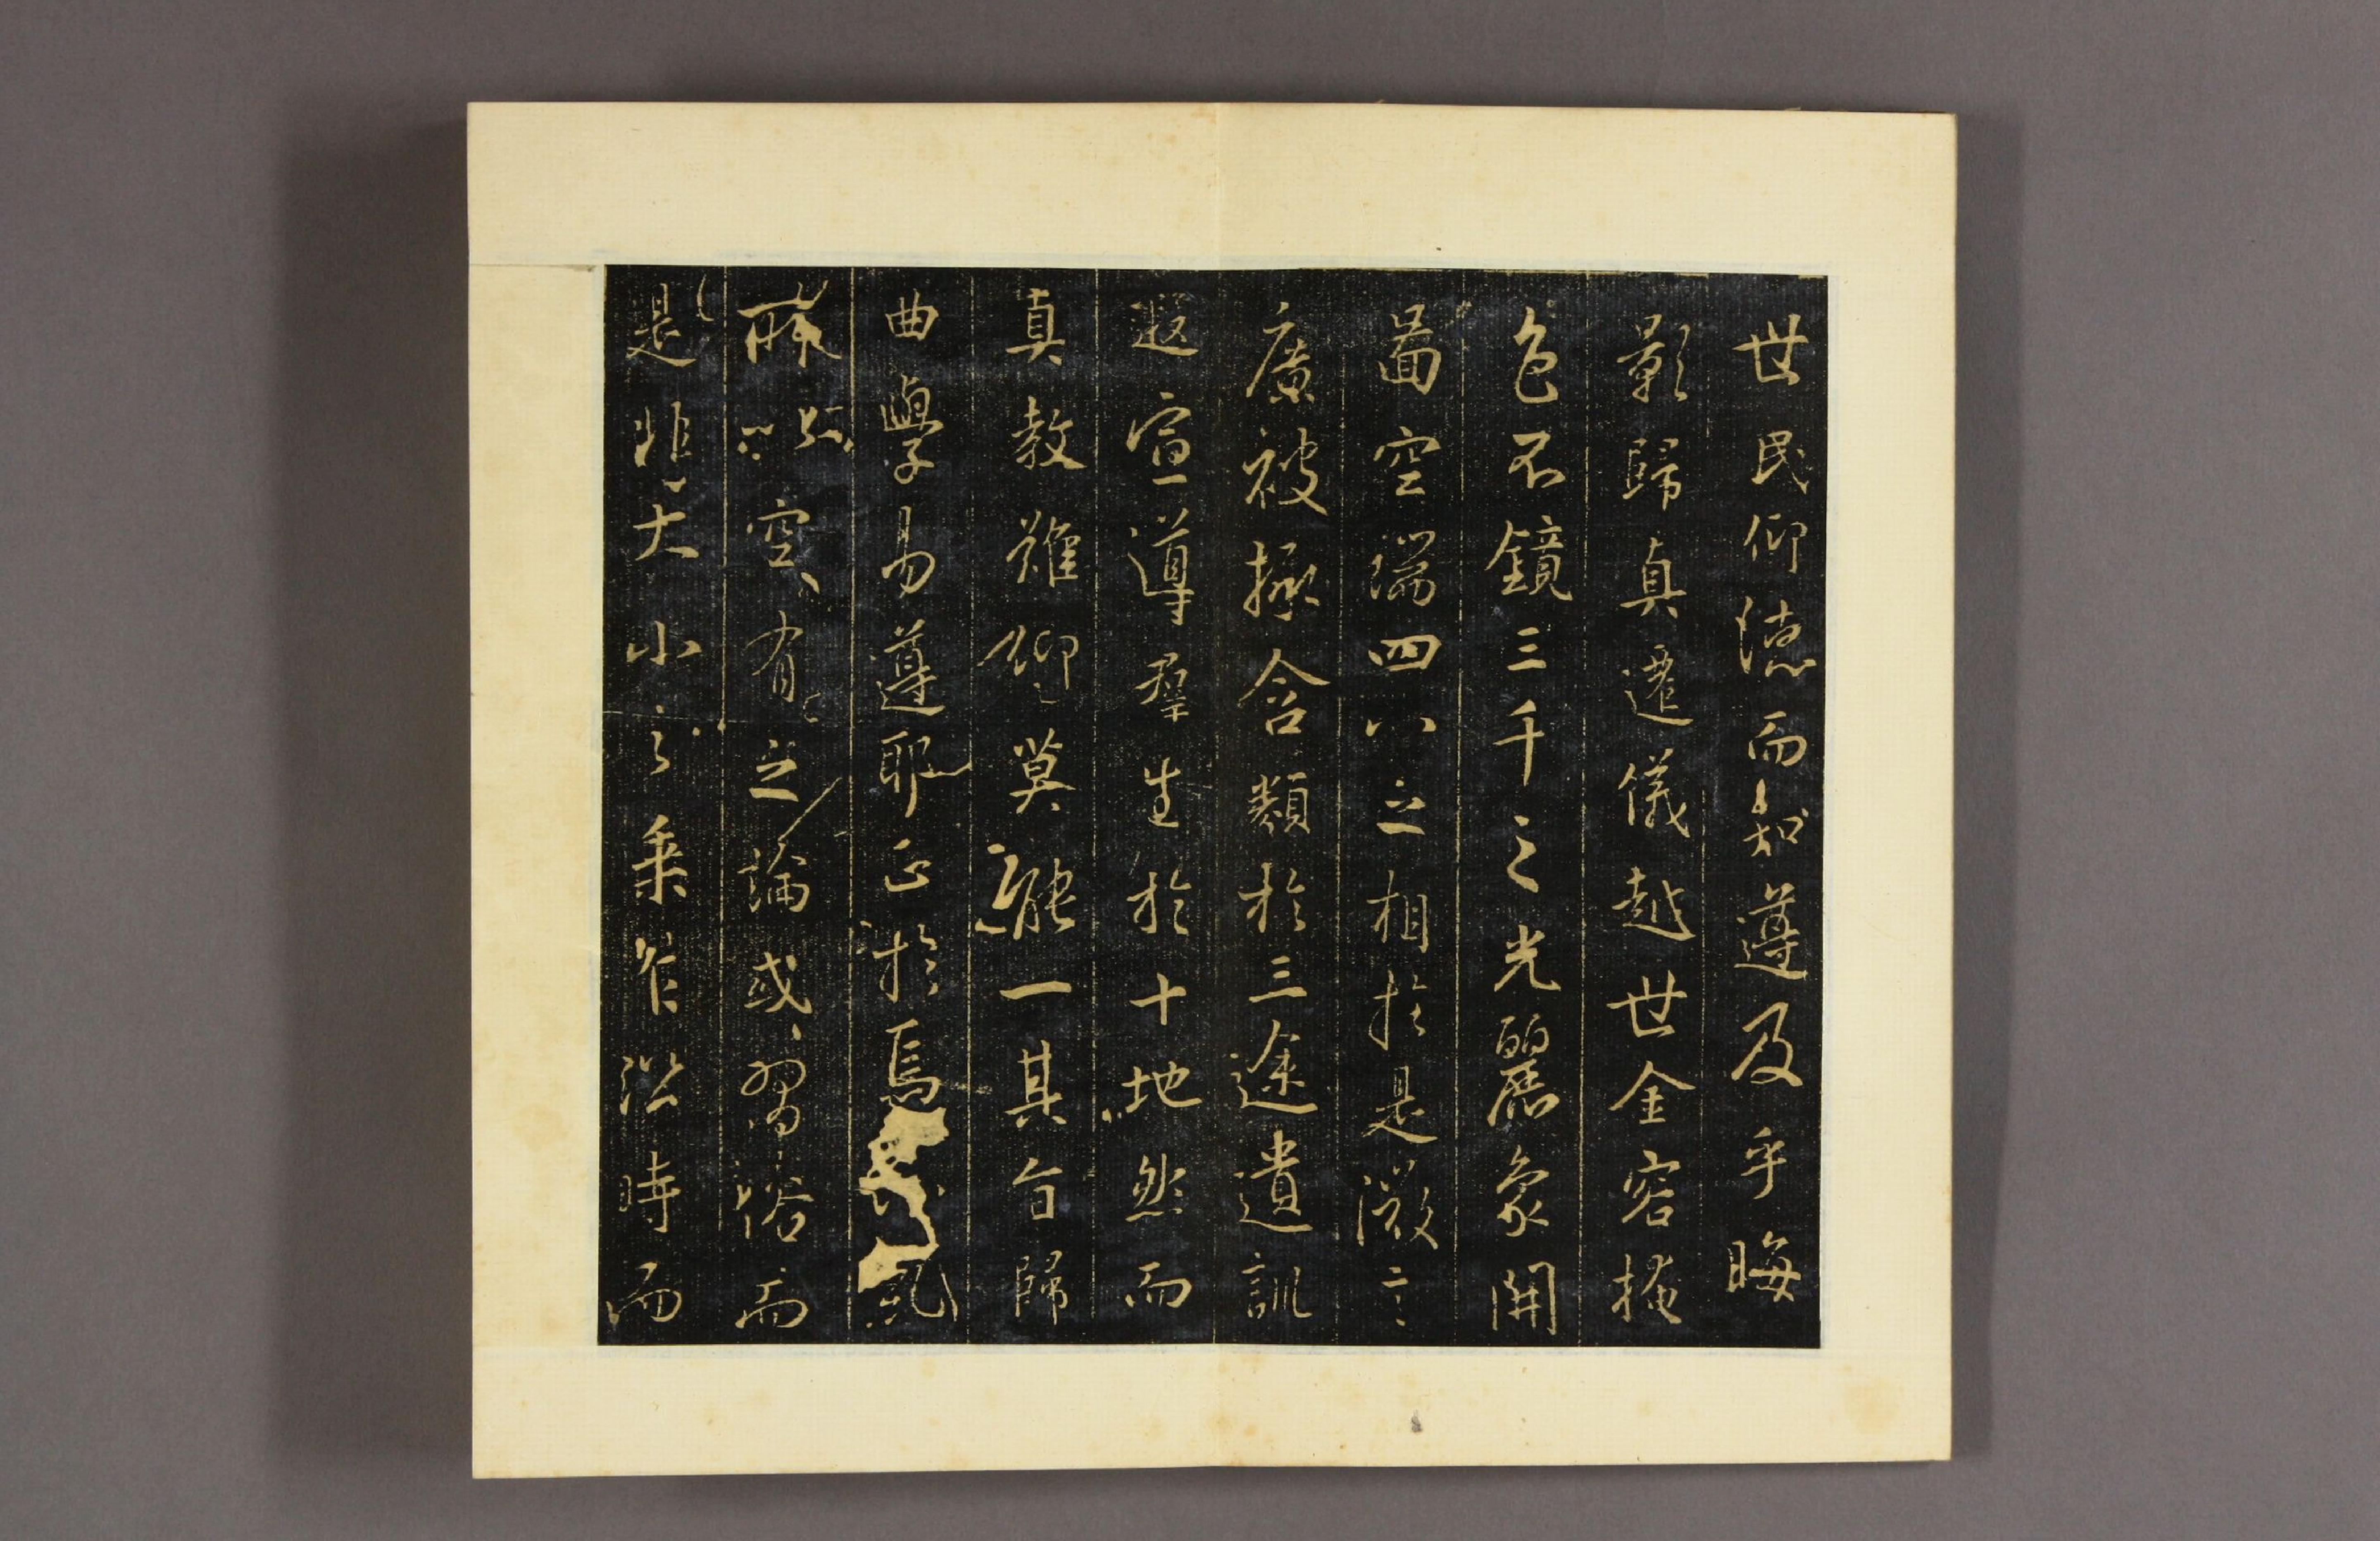 世民仰德而知遵及乎晦
影歸真遷儀越世金容掩
色不鏡三千之光麗象開
圖空端四八之相於是微言
廣被拯含類於三途遺訓
遐宣導羣生於十地然而
真教難仰莫能一其旨歸
曲學易遵耶正於焉糺
所以空有之論或習俗而
是非大小之乘乍沿時而